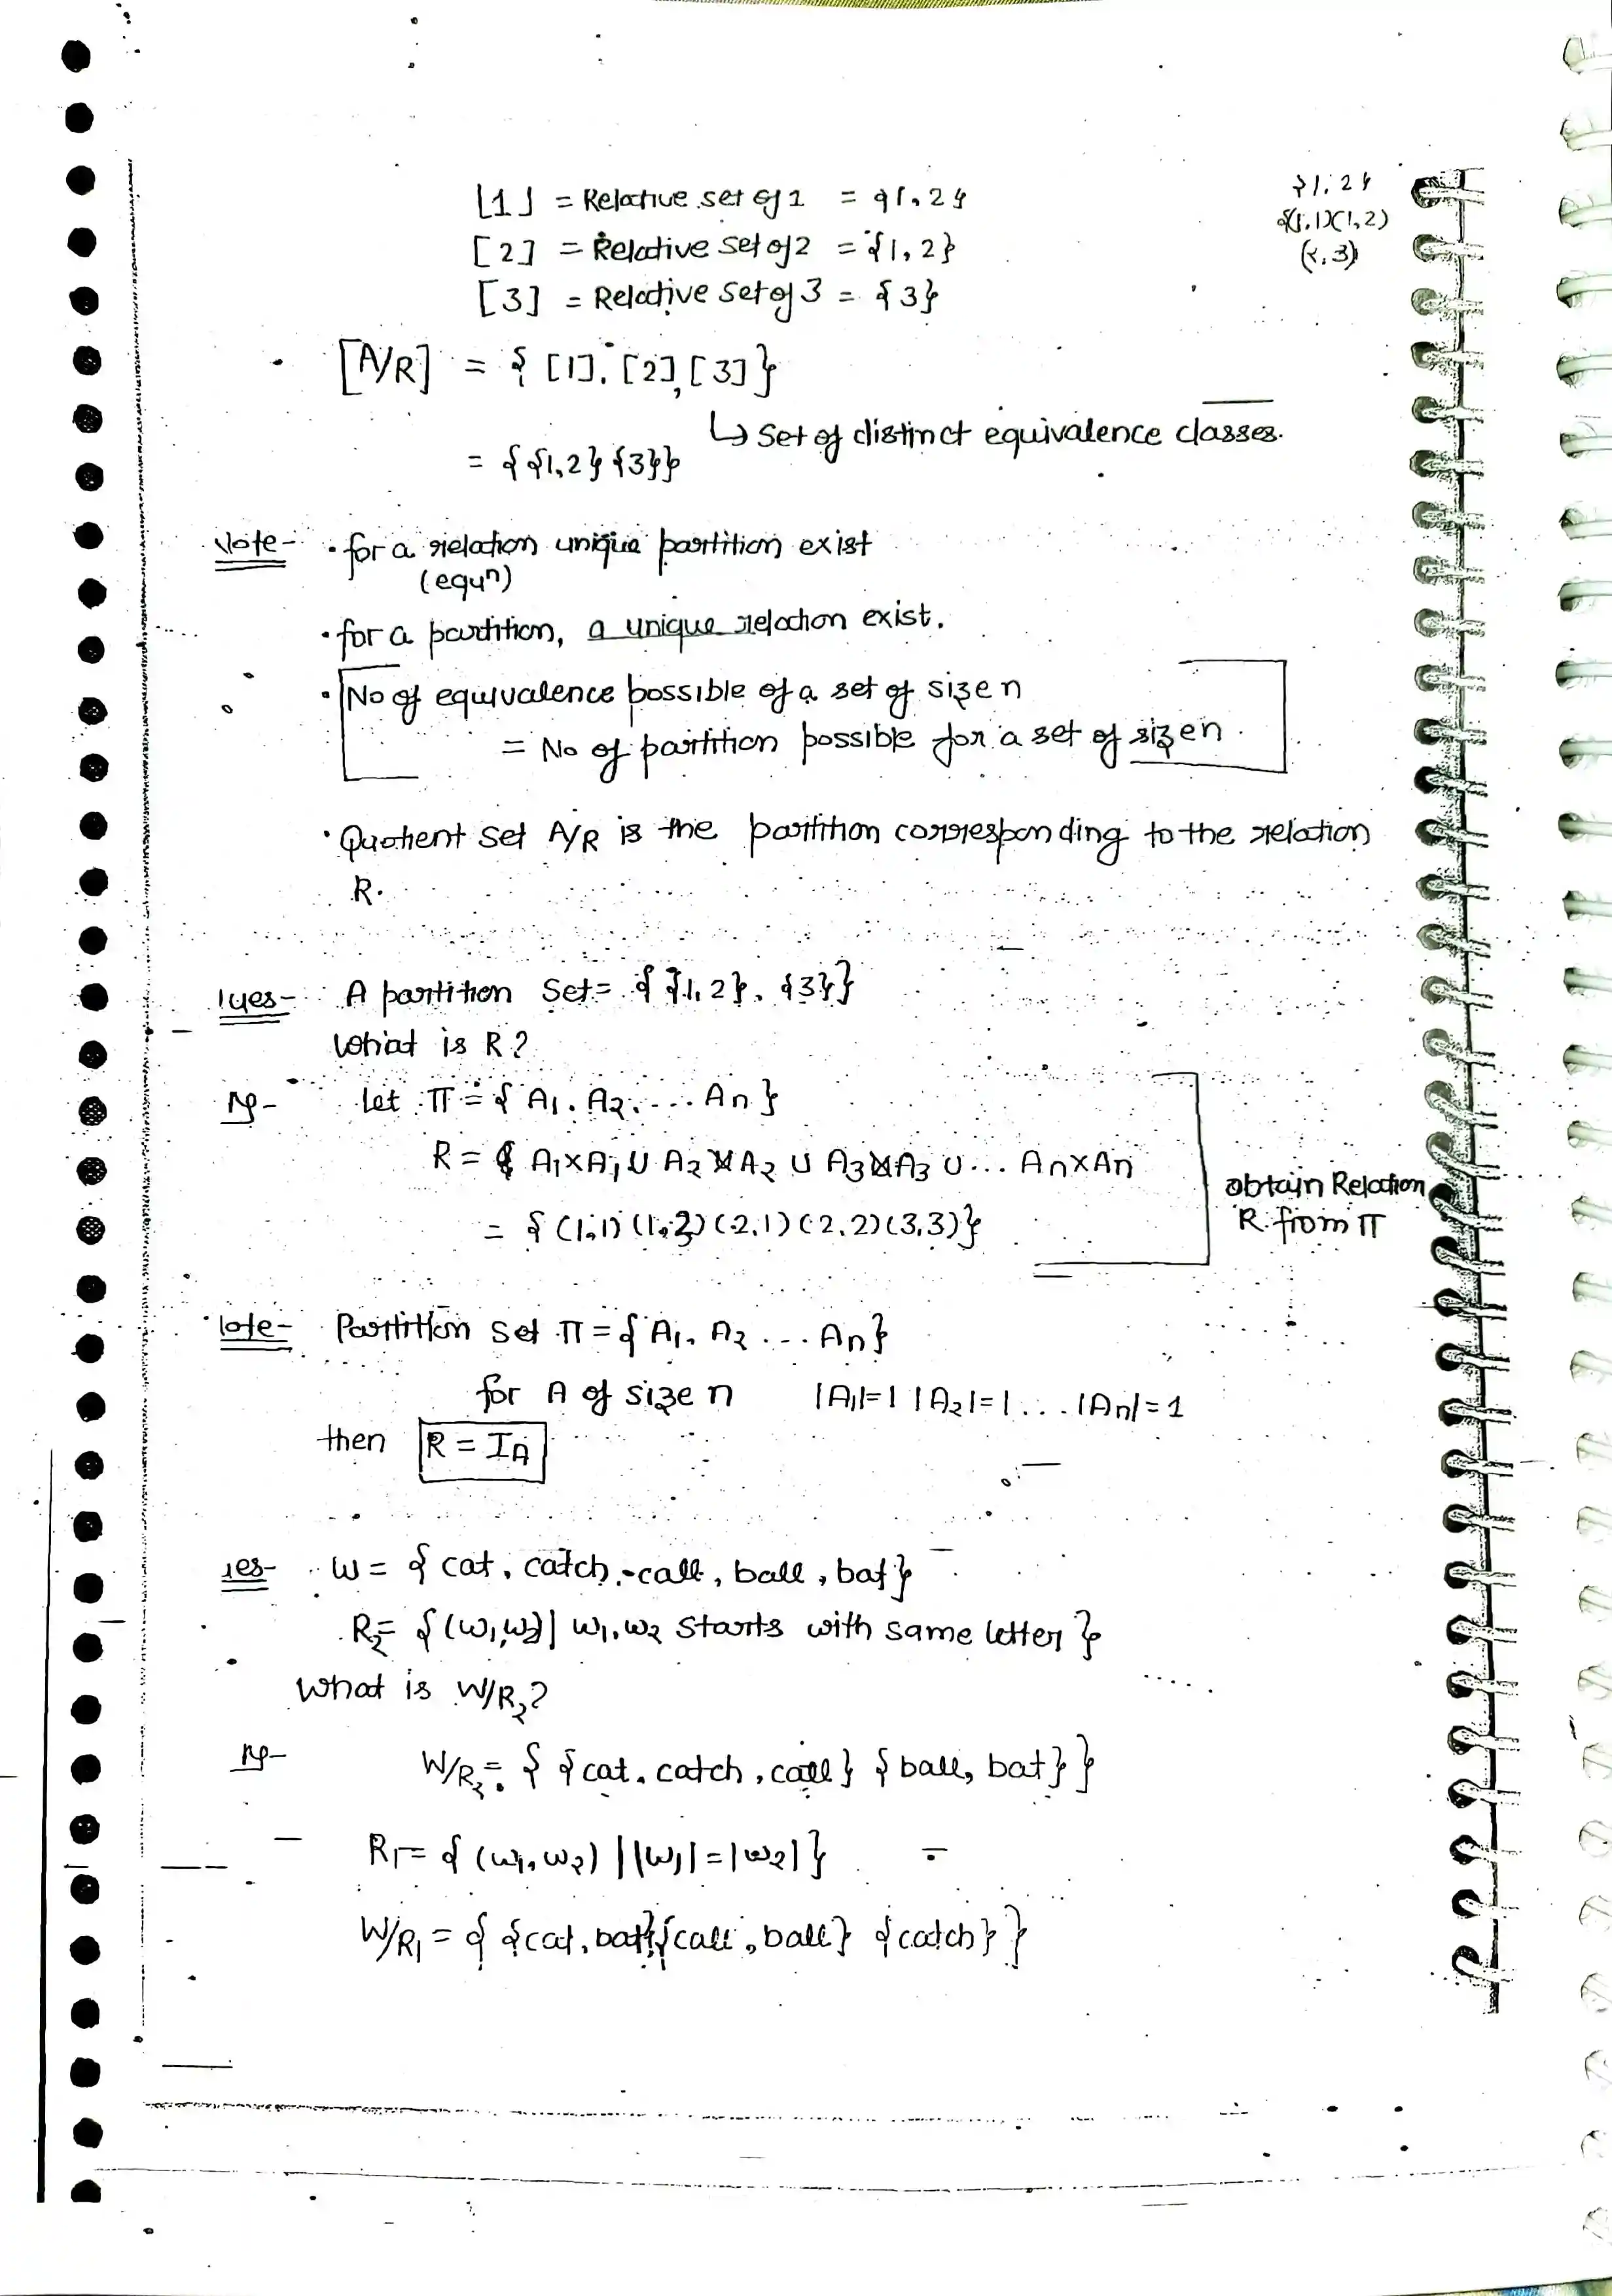 [1] = Relative set of 1 = {1, 2}
[2] = Relative set of 2 = {1, 2}
[3] = Relative set of 3 = {3}
{1, 2}
{(1,1)(1,2)
[A/R] = { [1], [2], [3] }
↳ Set of distinct equivalence classes.
= { {1,2} {3}}
Note- • for a relation unique partition exist
(equⁿ)
• for a partition, a unique relation exist.
• No of equivalence possible of a set of size n
= No of partition possible for a set of size n.
• Quotient set A/R is the partition corresponding to the relation
R.
ques- A partition Set = { {1, 2}, {3}}
What is R?
let π = { A1, A2, ... An }
R = { A1×A1 ∪ A2×A2 ∪ A3×A3 ∪ ... An×An
= { (1,1) (1,2) (2,1) (2,2) (3,3)}
obtain Relation
R from π
Note- Partition set π = { A1, A2 ... An}
for A of size n |A1|=1 |A2|=1 ... |An|=1
then R = I_A
W = { cat, catch, call, ball, bat}
R2= {(w1,w2)| w1,w2 starts with same letter }
What is W/R2?
W/R2= { {cat, catch, call} {ball, bat} }
R1= { (w1, w2) | |w1| = |w2| }
W/R1 = { {cat, bat}{call, ball} {catch} }